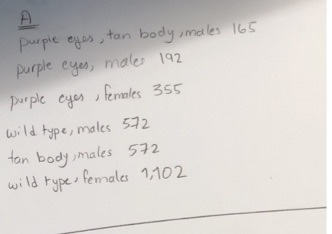 A
purple eyes, tan body, males 165
purple eyes, males 192
purple eyes, females 355
wild type, males 572
tan body, males 572
wild type, females 1,102